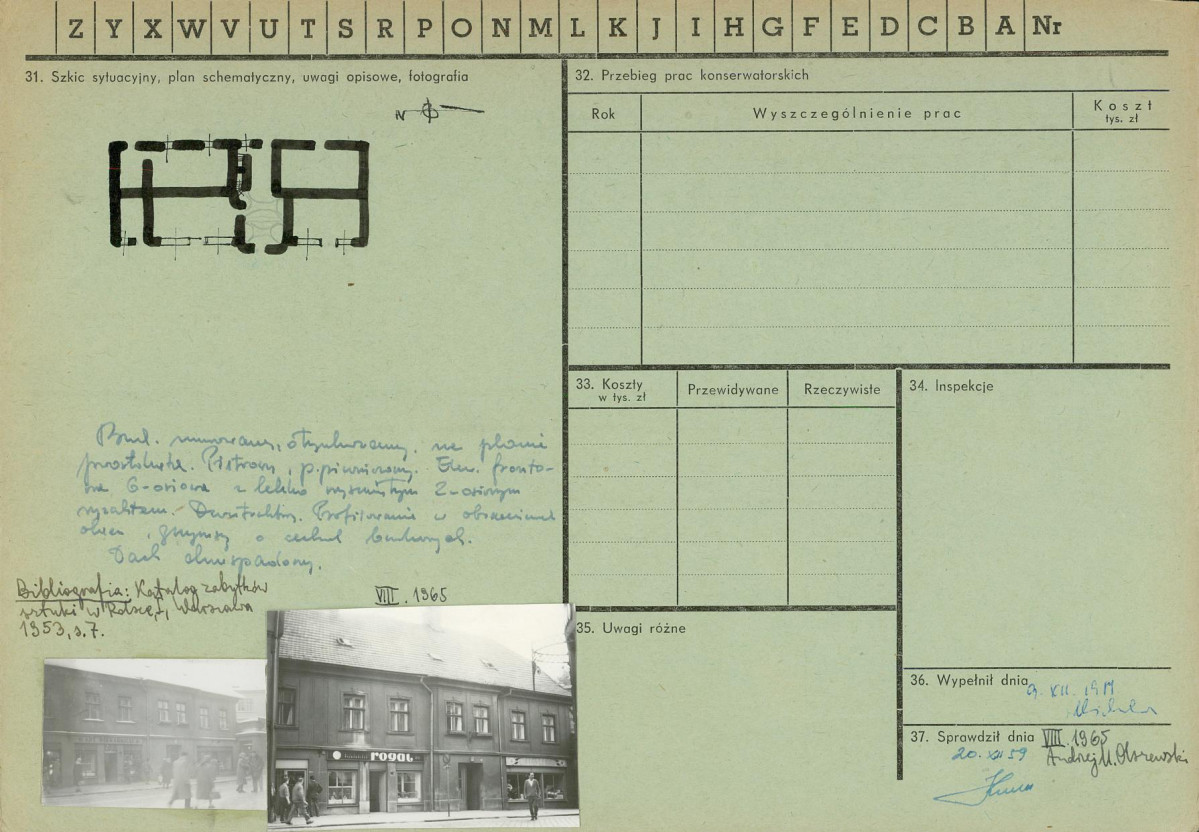 Z Y X W V U T S R P O N M L K J I H G F E D C B A Nr
31. Szkic sytuacyjny, plan schematyczny, uwagi opisowe, fotografia
N
Bud. murowany, otynkowany, na planie
prostokąta. Piętrowy, p.piwniczony. Elew. fronto-
wa 6-osiowa z lekko wysuniętym 2-osiowym
ryzalitem. Dwutraktowy. Profilowanie w obramieniach
okien, gzymsy o cechach
Dach dwuspadowy.
Bibliografia: Katalog zabytków
sztuki w Polsce, Warszawa
1953, s.7.
VIII. 1965
rogal
32. Przebieg prac konserwatorskich
Rok
Wyszczególnienie prac
Koszt
tys. zł
33. Koszty
w tys. zł
Przewidywane
Rzeczywiste
34. Inspekcje
35. Uwagi różne
36. Wypełnił dnia
37. Sprawdził dnia VIII. 1965
20. XII 59 Andrzej K. Olszewski